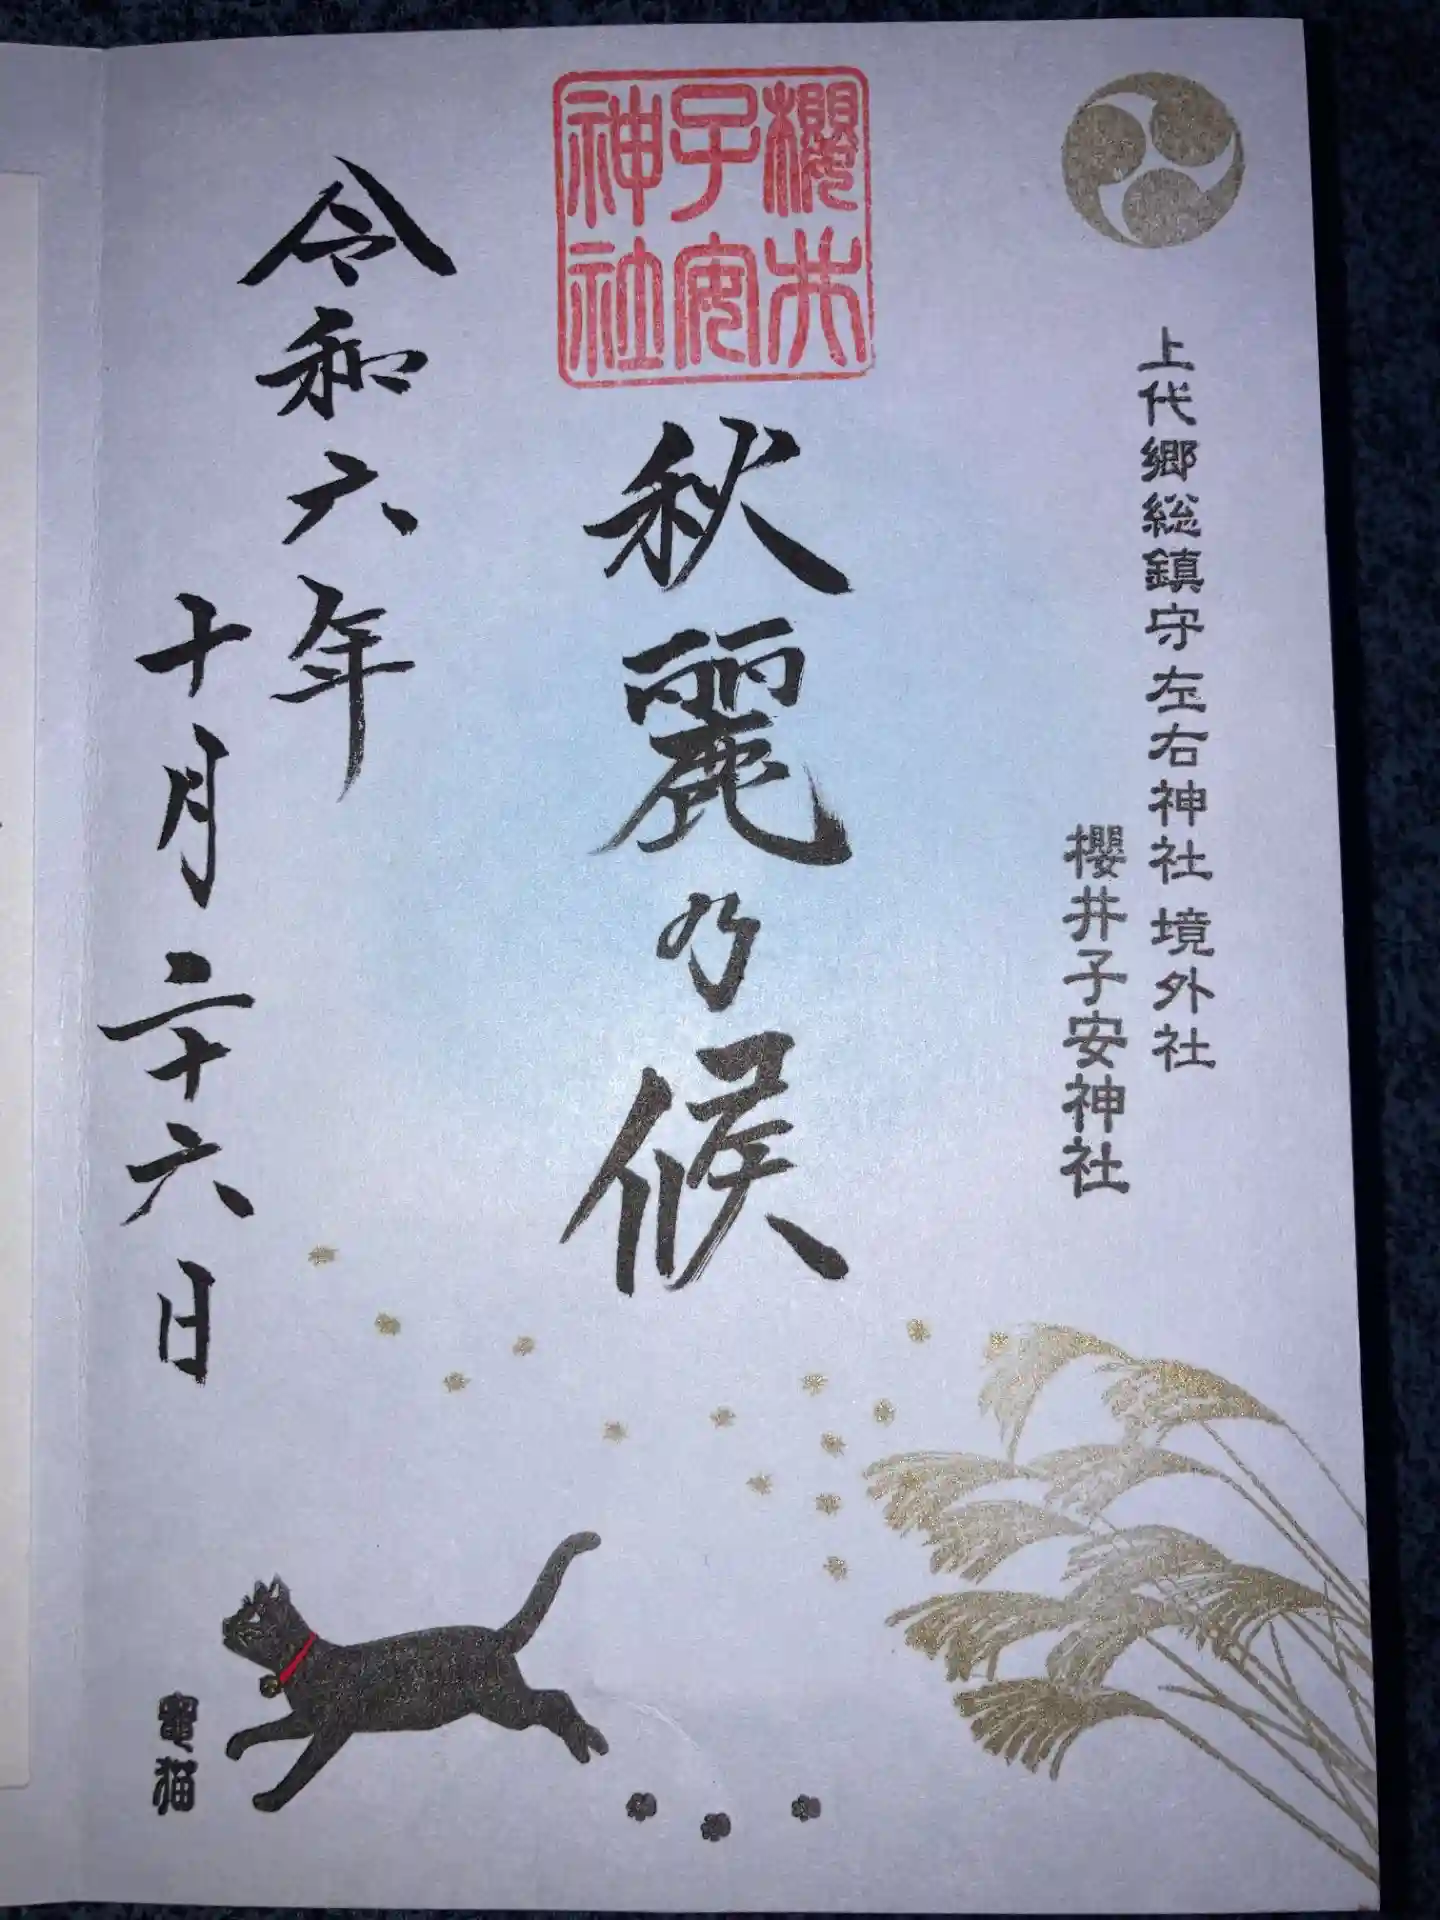 上代郷総鎮守左右神社 境外社
櫻井子安神社
櫻井
子安
神社
秋麗乃候
令和六年
十月二十六日
竈猫